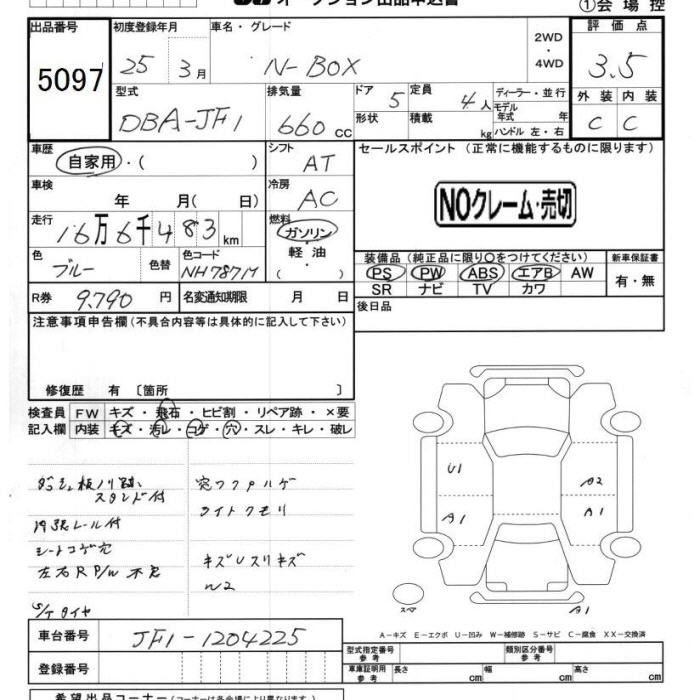 オークション出品申込書
①会場控
出品番号 初度登録年月 車名・グレード 2WD・4WD 評価点
5097 25 3月 N-BOX 3.5
型式 排気量 ドア 定員 ディーラー・並行 外装 内装
DBA-JF1 660cc 5 4人 モデル年式 年 C C
形状 積載 kg ハンドル 左・右
車歴 シフト セールスポイント (正常に機能するものに限ります)
自家用・( ) AT
車検 冷房
年 月( 日) AC
NOクレーム・売切
走行 燃料
16万6千483km ガソリン・軽油・( )
色 色替 色コード
ブルー NH787M
装備品 (純正品に限り○をつけてください) 新車保証書
PS PW ABS エアB AW 有・無
SR ナビ TV カワ
R券 9,790円 名変通知期限 月 日
後日品
注意事項申告欄(不具合内容等は具体的に記入して下さい)
修復歴 有 〔箇所 〕
検査員 FW キズ・飛石・ヒビ割・リペア跡・×要
記入欄 内装 キズ・汚レ・コゲ・穴・スレ・キレ・破レ
ダッシュ板ノリ跡、
スタンド付
内張レール付
シートコゲ穴
左右R P/W 不良
S/Tタイヤ
ライトクモリ
キズUスリキズ
U1
A1
A2
A1
スペア
A1
A-キズ E-エクボ U-凹み W-補修跡 S-サビ C-腐食 XX-交換済
車台番号 JF1-1204225
登録番号
型式指定番号 参考 類別区分番号 参考
車庫証明用 参考 長さ cm 幅 cm 高さ cm
希望出品コーナー(コーナーは各会場により異なります)